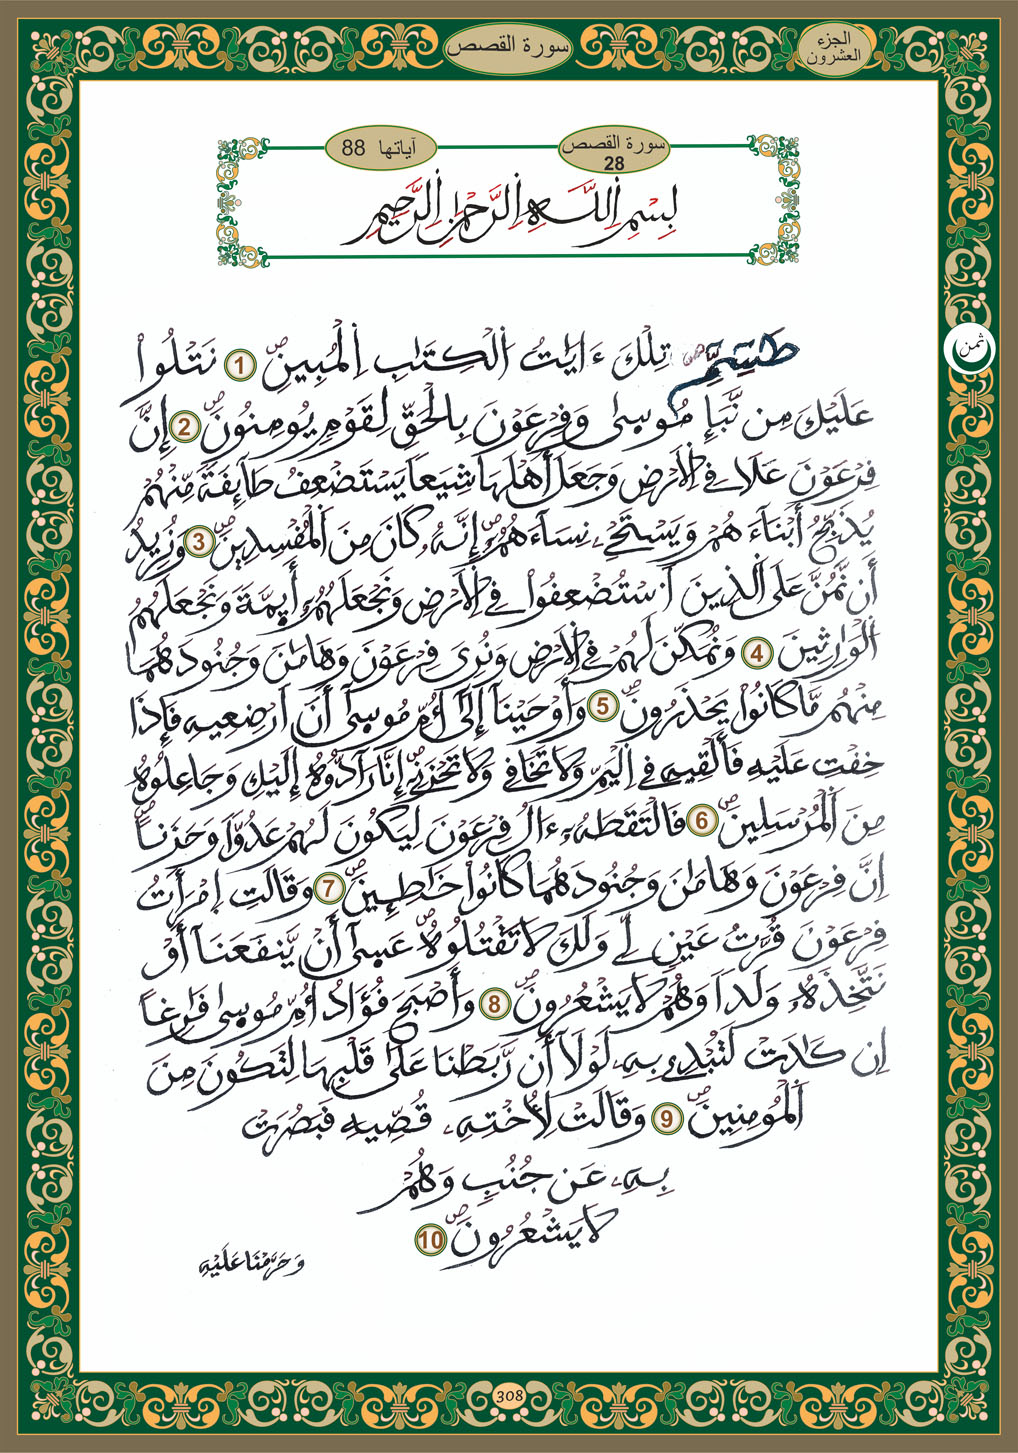 سورة القصص
الجزء
العشرون
سورة القصص
28
آياتها 88
بِسْمِ اِ۬للَّهِ اِ۬لرَّحْمَٰنِ اِ۬لرَّحِيمِ
ثمن
طَسِٓمِّٓۖ تِلْكَ ءَايَٰتُ اُ۬لْكِتَٰبِ اِ۬لْمُبِينِۖ 1 نَتْلُواْ
عَلَيْكَ مِن نَّبَإِ مُوسىٰ وَفِرْعَوْنَ بِالْحَقِّ لِقَوْمٖ يُومِنُونَۖ 2 إِنَّ
فِرْعَوْنَ عَلَا فِے اِ۬لَارْضِ وَجَعَلَ أَهْلَهَا شِيَعاٗ يَسْتَضْعِفُ طَآئِفَةٗ مِّنْهُمْ
يُذَبِّحُ أَبْنَآءَهُمْ وَيَسْتَحْيِۦ نِسَآءَهُمُۥٓۖ إِنَّهُۥ كَانَ مِنَ اَ۬لْمُفْسِدِينَۖ 3 وَنُرِيدُ
أَن نَّمُنَّ عَلَى اَ۬لذِينَ اَ۟سْتُضْعِفُواْ فِے اِ۬لَارْضِ وَنَجْعَلَهُمُۥٓ أَيِمَّةٗ وَنَجْعَلَهُمُ
اُ۬لْوَٰرِثِينَ 4 وَنُمَكِّنَ لَهُمْ فِے اِ۬لَارْضِ وَنُرِيَ فِرْعَوْنَ وَهَٰمَٰنَ وَجُنُودَهُمَا
مِنْهُم مَّا كَانُواْ يَحْذَرُونَۖ 5 وَأَوْحَيْنَآ إِلَىٰٓ أُمِّ مُوسىٰٓ أَنَ اَرْضِعِيهِ فَإِذَا
خِفْتِ عَلَيْهِ فَأَلْقِيهِ فِے اِ۬لْيَمِّ وَلَا تَخَافِے وَلَا تَحْزَنِےٓۖ إِنَّا رَآدُّوهُ إِلَيْكِ وَجَاعِلُوهُ
مِنَ اَ۬لْمُرْسَلِينَۖ 6 فَالْتَقَطَهُۥٓ ءَالُ فِرْعَوْنَ لِيَكُونَ لَهُمْ عَدُوّاٗ وَحَزَناًۖ
اِنَّ فِرْعَوْنَ وَهَٰمَٰنَ وَجُنُودَهُمَا كَانُواْ خَٰطِـِٕينَۖ 7 وَقَالَتِ اِ۪مْرَأَتُ
فِرْعَوْنَ قُرَّتُ عَيْنٖ لِّے وَلَكَ لَا تَقْتُلُوهُۖ عَسىٰٓ أَنْ يَّنفَعَنَآ أَوْ
نَتَّخِذَهُۥ وَلَداٗ وَهُمْ لَا يَشْعُرُونَۖ 8 وَأَصْبَحَ فُؤَادُ أُمِّ مُوسىٰ فَٰرِغاً
اِن كَادَتْ لَتُبْدِے بِهِۦ لَوْلَآ أَن رَّبَطْنَا عَلَىٰ قَلْبِهَا لِتَكُونَ مِنَ
اَ۬لْمُومِنِينَۖ 9 وَقَالَتْ لِأُخْتِهِۦ قُصِّيهِ فَبَصُرَتْ
بِهِۦ عَن جُنُبٖ وَهُمْ
لَا يَشْعُرُونَۖ 10
وَحَرَّمْنَا عَلَيْهِ
308